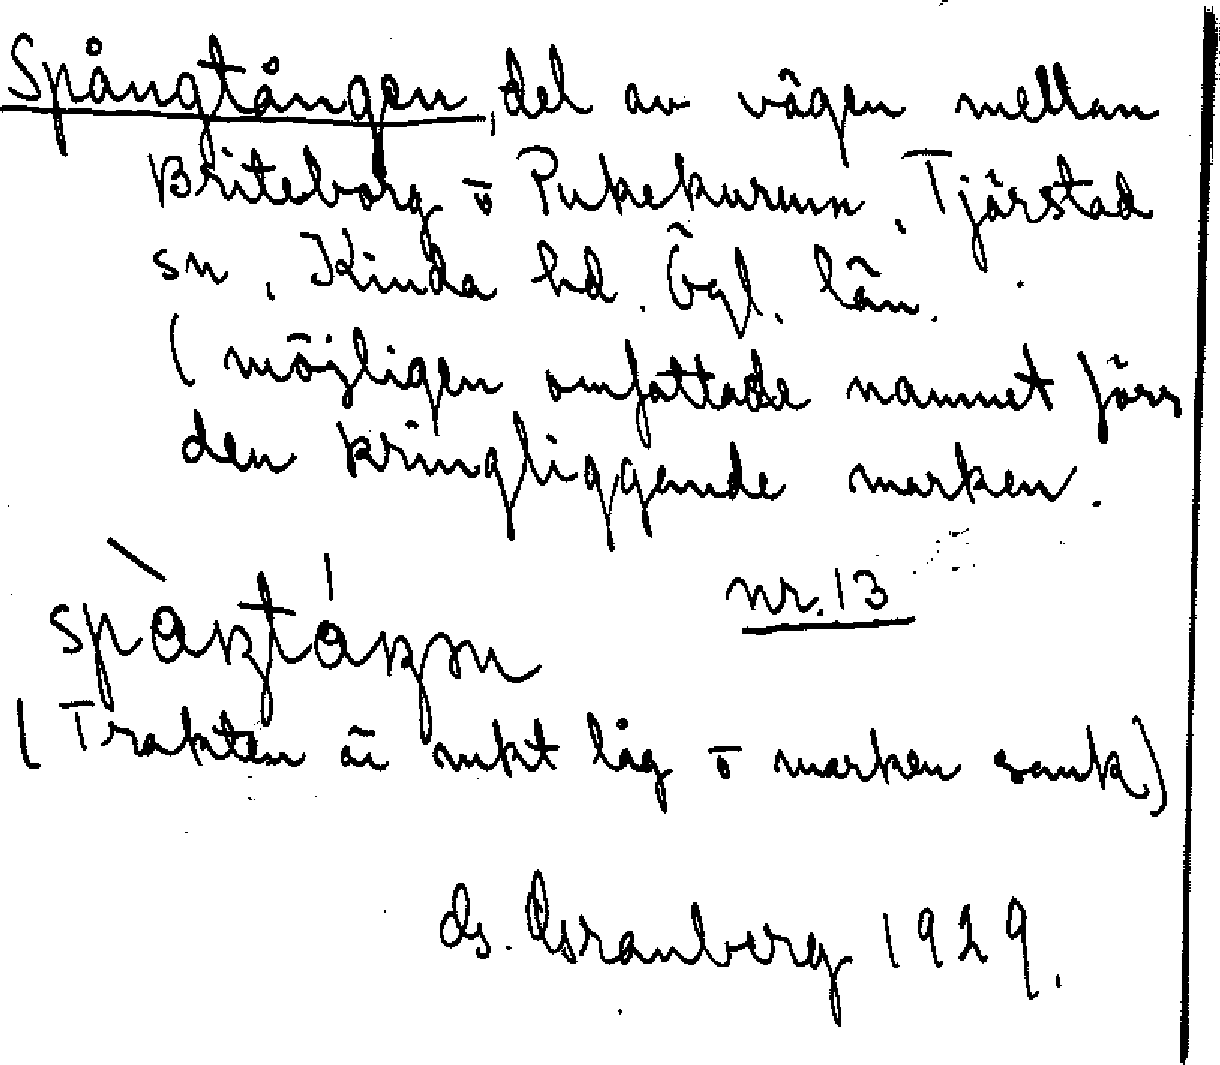 Spångtången, del av vägen mellan
Briteborg o Pukekurum, Tjärstad
sn, Kinda hd. Ögl. län.
(möjligen omfattade namnet förr
den kringliggende marken.
nr. 13
(Trakten är mkt låg o marken sank)
G. Granberg 1929.